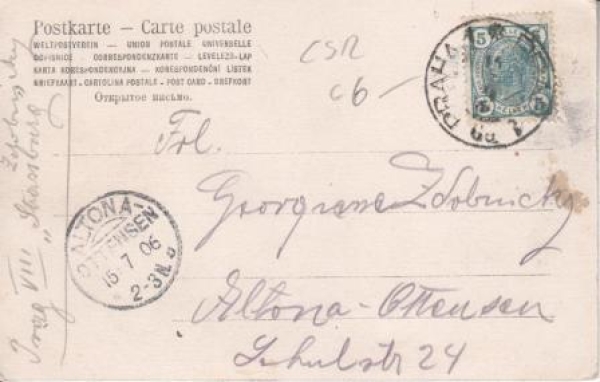 Postkarte — Carte postale
WELTPOSTVEREIN — UNION POSTALE UNIVERSELLE
DOPISNICE — CORRESPONDENZKARTE — LEVELEZŐ-LAP
KARTA KORESPONDENCYJNA — KORESPONDENČNÍ LÍSTEK
BRIEFKAART — CARTOLINA POSTALE — POST CARD — BREFKORT
Открытое письмо.
ČSR
c6 —
5 5
PRAHA
Frl.
Georgiane Zdobnicky
Altona-Ottensen
Schulstr 24
ALTONA
OTTENSEN
15 7 06
2-3N.
Prag VIII „Strassburg"